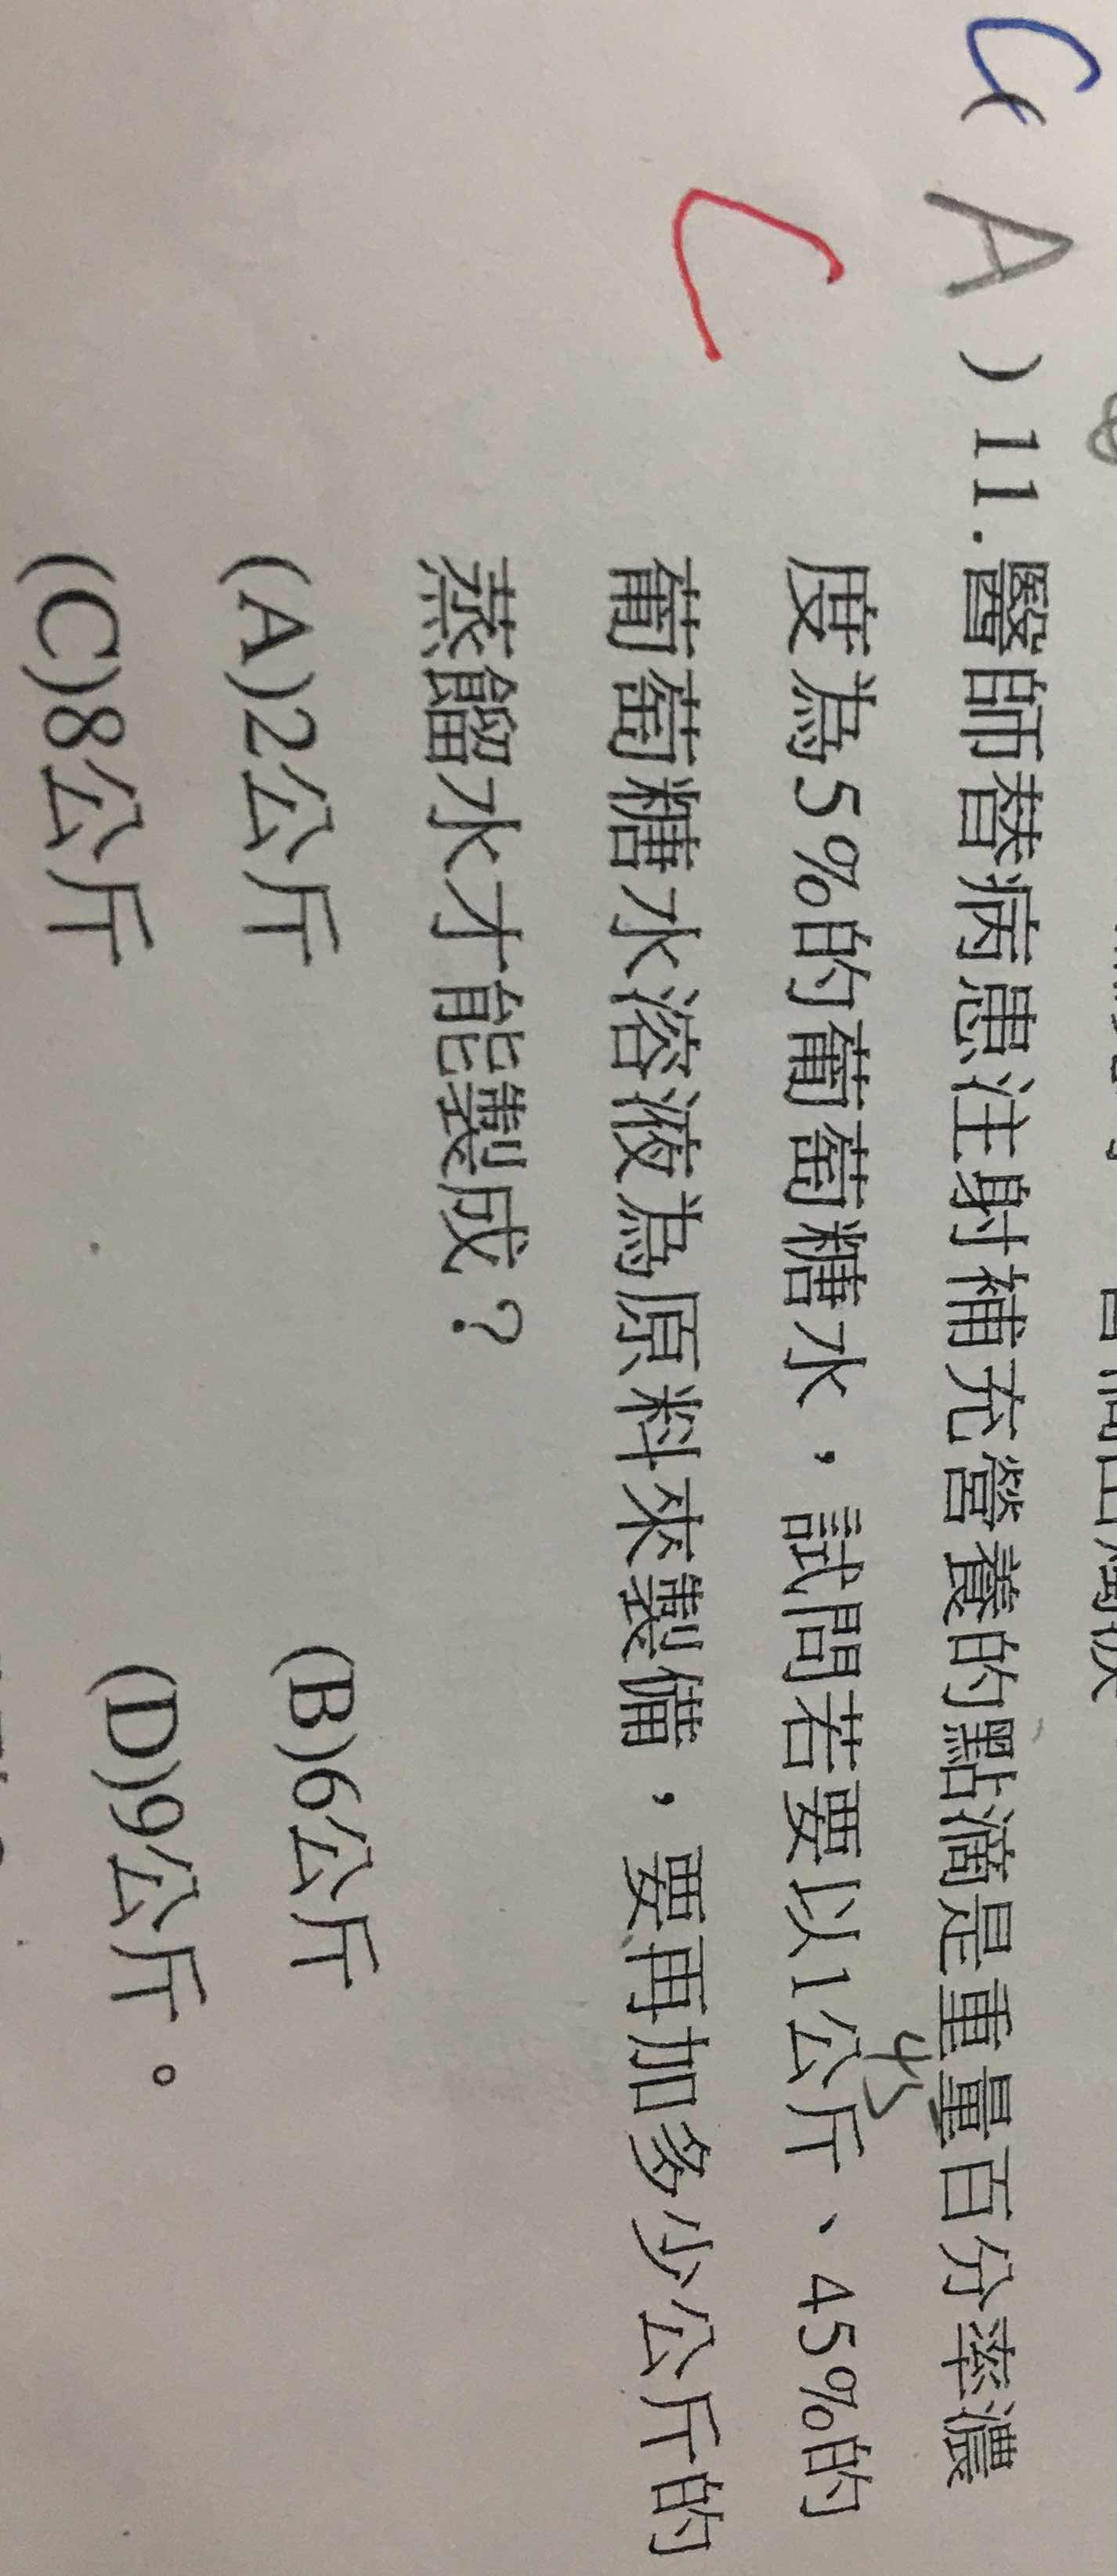 C
(A)11.醫師替病患注射補充營養的點滴是重量百分率濃
度為5%的葡萄糖水，試問若要以1公斤、45%的
葡萄糖水溶液為原料來製備，要再加多少公斤的
蒸餾水才能製成？
C
(A)2公斤 (B)6公斤
(C)8公斤 (D)9公斤。